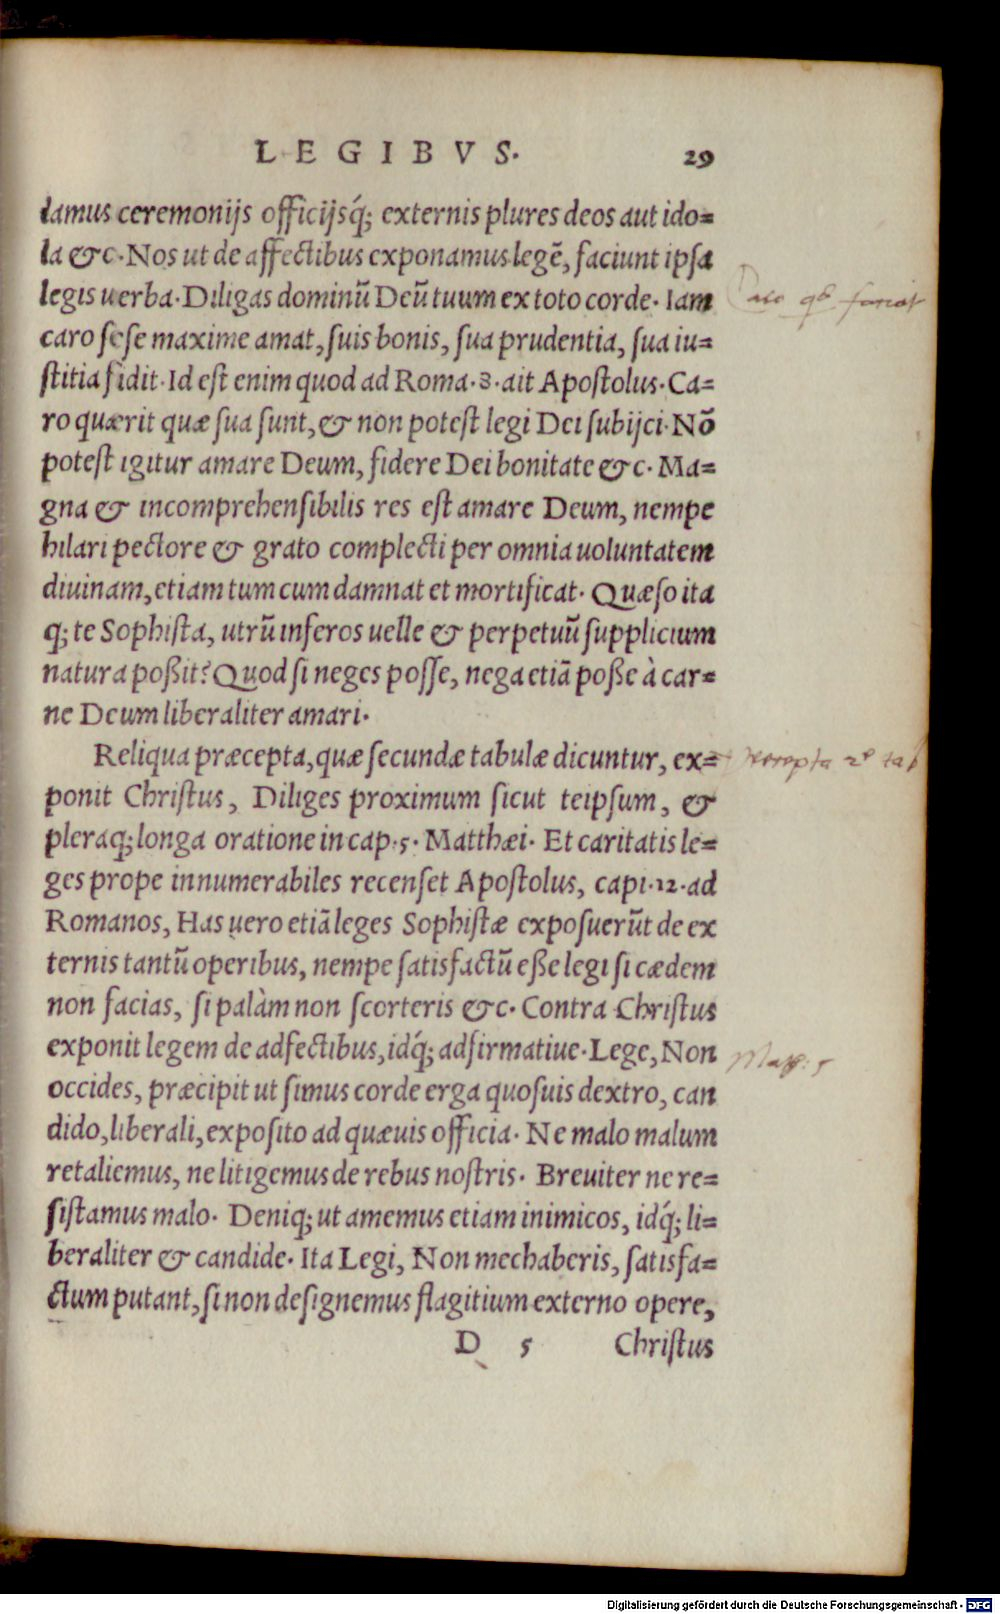 LEGIBVS. 29
lamus ceremonijs officijsq́; externis plures deos aut ido=
la &c. Nos ut de affectibus exponamus legẽ, faciunt ipsa
legis uerba. Diligas dominũ Deũ tuum ex toto corde. Iam
caro sese maxime amat, suis bonis, sua prudentia, sua iu=
stitia fidit. Id est enim quod ad Roma. 8. ait Apostolus. Ca=
ro quærit quæ sua sunt, & non potest legi Dei subijci. Nõ
potest igitur amare Deum, fidere Dei bonitate &c. Ma=
gna & incomprehensibilis res est amare Deum, nempe
hilari pectore & grato complecti per omnia uoluntatem
diuinam, etiam tum cum damnat et mortificat. Quæso ita
q; te Sophista, utrũ inferos uelle & perpetuũ supplicium
natura poßit? Quod si neges posse, nega etiã poße à car=
ne Deum liberaliter amari.
Reliqua præcepta, quæ secundæ tabulæ dicuntur, ex=
ponit Christus, Diliges proximum sicut teipsum, &
pleraq; longa oratione in cap. 5. Matthæi. Et caritatis le=
ges prope innumerabiles recenset Apostolus, capi. 12. ad
Romanos, Has uero etiã leges Sophistæ exposuerũt de ex
ternis tantũ operibus, nempe satisfactũ eße legi si cædem
non facias, si palàm non scorteris &c. Contra Christus
exponit legem de adfectibus, idq́; adfirmatiue. Lege, Non
occides, præcipit ut simus corde erga quosuis dextro, can
dido, liberali, exposito ad quæuis officia. Ne malo malum
retaliemus, ne litigemus de rebus nostris. Breuiter ne re=
sistamus malo. Deniq; ut amemus etiam inimicos, idq́; li=
beraliter & candide. Ita Legi, Non mechaberis, satisfa=
ctum putant, si non designemus flagitium externo opere,
D 5 Christus
Caro qd faciat
præcepta 2e tab
Matth: 5
Digitalisierung gefördert durch die Deutsche Forschungsgemeinschaft - DFG